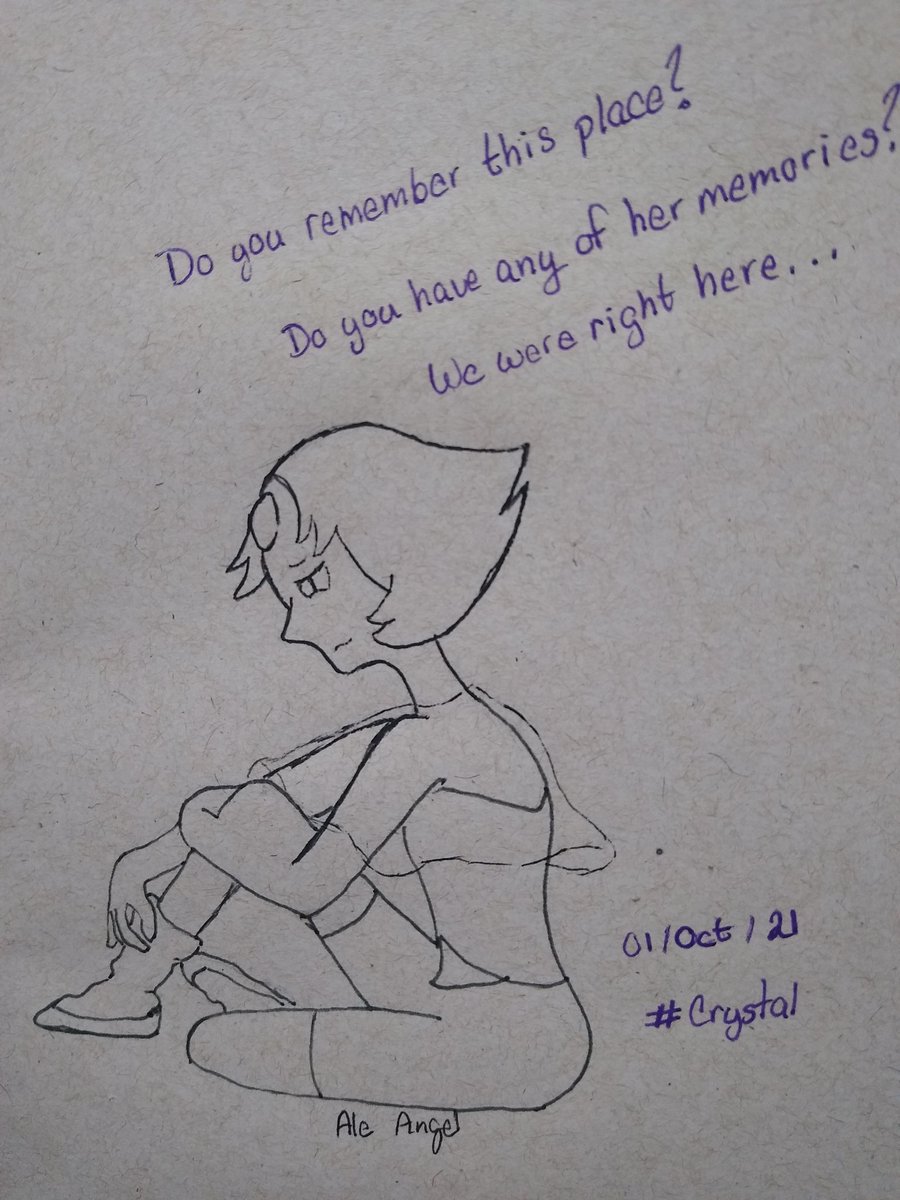 Do you remember this place?
Do you have any of her memories?
We were right here...
01/Oct/21
#Crystal
Ale Angel